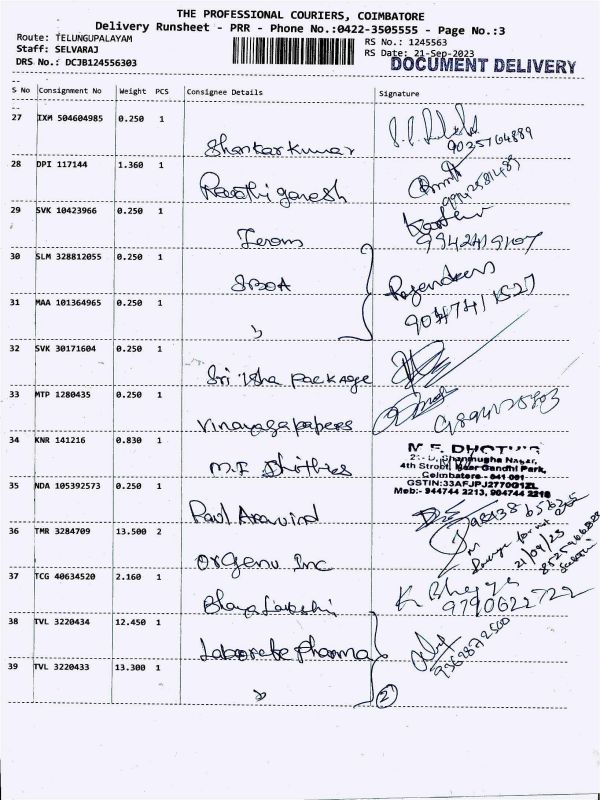 THE PROFESSIONAL COURIERS, COIMBATORE
Delivery Runsheet - PRR - Phone No.:0422-3505555 - Page No.:3
Route: TELUNGUPALAYAM
RS No.: 1245563
Staff: SELVARAJ
RS Date: 21-Sep-2023
DRS No.: DCJB124556303
DOCUMENT DELIVERY
S No Consignment No Weight PCS Consignee Details Signature
27 IXM 504604985 0.250 1
Shankar kumar
9025764889
28 DPI 117144 1.360 1
ganesh
29 SVK 10423966 0.250 1
9942419107
30 SLM 328812055 0.250 1
Rajendran
31 MAA 101364965 0.250 1
32 SVK 30171604 0.250 1
Sri Isha Package
33 MTP 1280435 0.250 1
Vinayaga papers
34 KNR 141216 0.830 1
M.F Dhothies
4th Street, Near Gandhi Park,
Coimbatore - 641 001
GSTIN:33AFJPJ2770G1ZL
Mob:- 944744 2213, 904744 2218
35 NDA 105392573 0.250 1
Paul Aravind
36 TMR 3284709 13.500 2
Inc
21/09/23
37 TCG 40634520 2.160 1
K. Bhagya
9790622722
38 TVL 3220434 12.450 1
Pharma
39 TVL 3220433 13.300 1
2